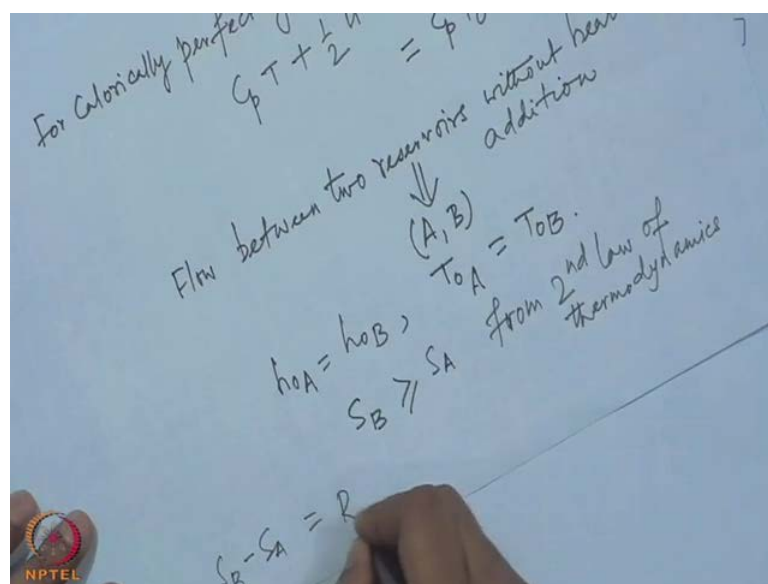 For Calorically perfect
CpT + 1/2 u = CpT0
Flow between two reservoirs without heat
addition
⇓
(A, B)
h0A = h0B, T0A = T0B.
SB ⩾ SA from 2nd law of
thermodynamics
SB - SA = R
NPTEL